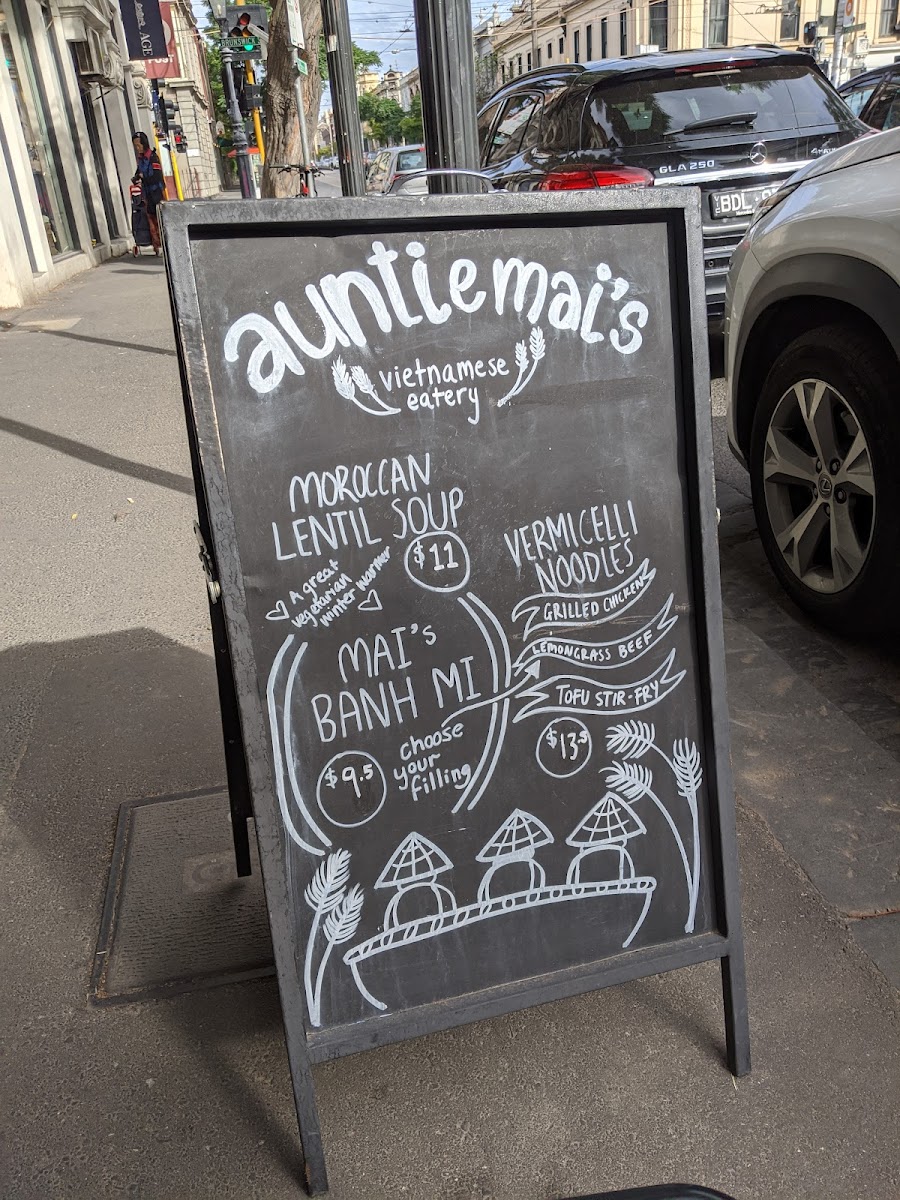 auntie mai's
vietnamese
eatery
MOROCCAN
LENTIL SOUP
$11
A great
vegetarian
winter warmer
MAI's
BANH MI
$9.5
choose
your
filling
VERMICELLI
NOODLES
GRILLED CHICKEN
LEMONGRASS BEEF
TOFU STIR-FRY
$13.5
BRUNSWICK
AGE
POST
GLA 250
4MATIC